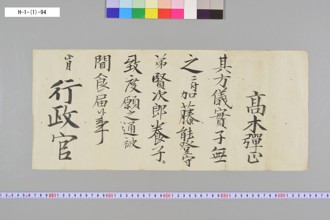 H-1-(1)-94
高木彈正
其方儀實子無
之ニ付加藤能登守
弟賢次郎養子
致度願之通被
聞食届候事
月
行政官